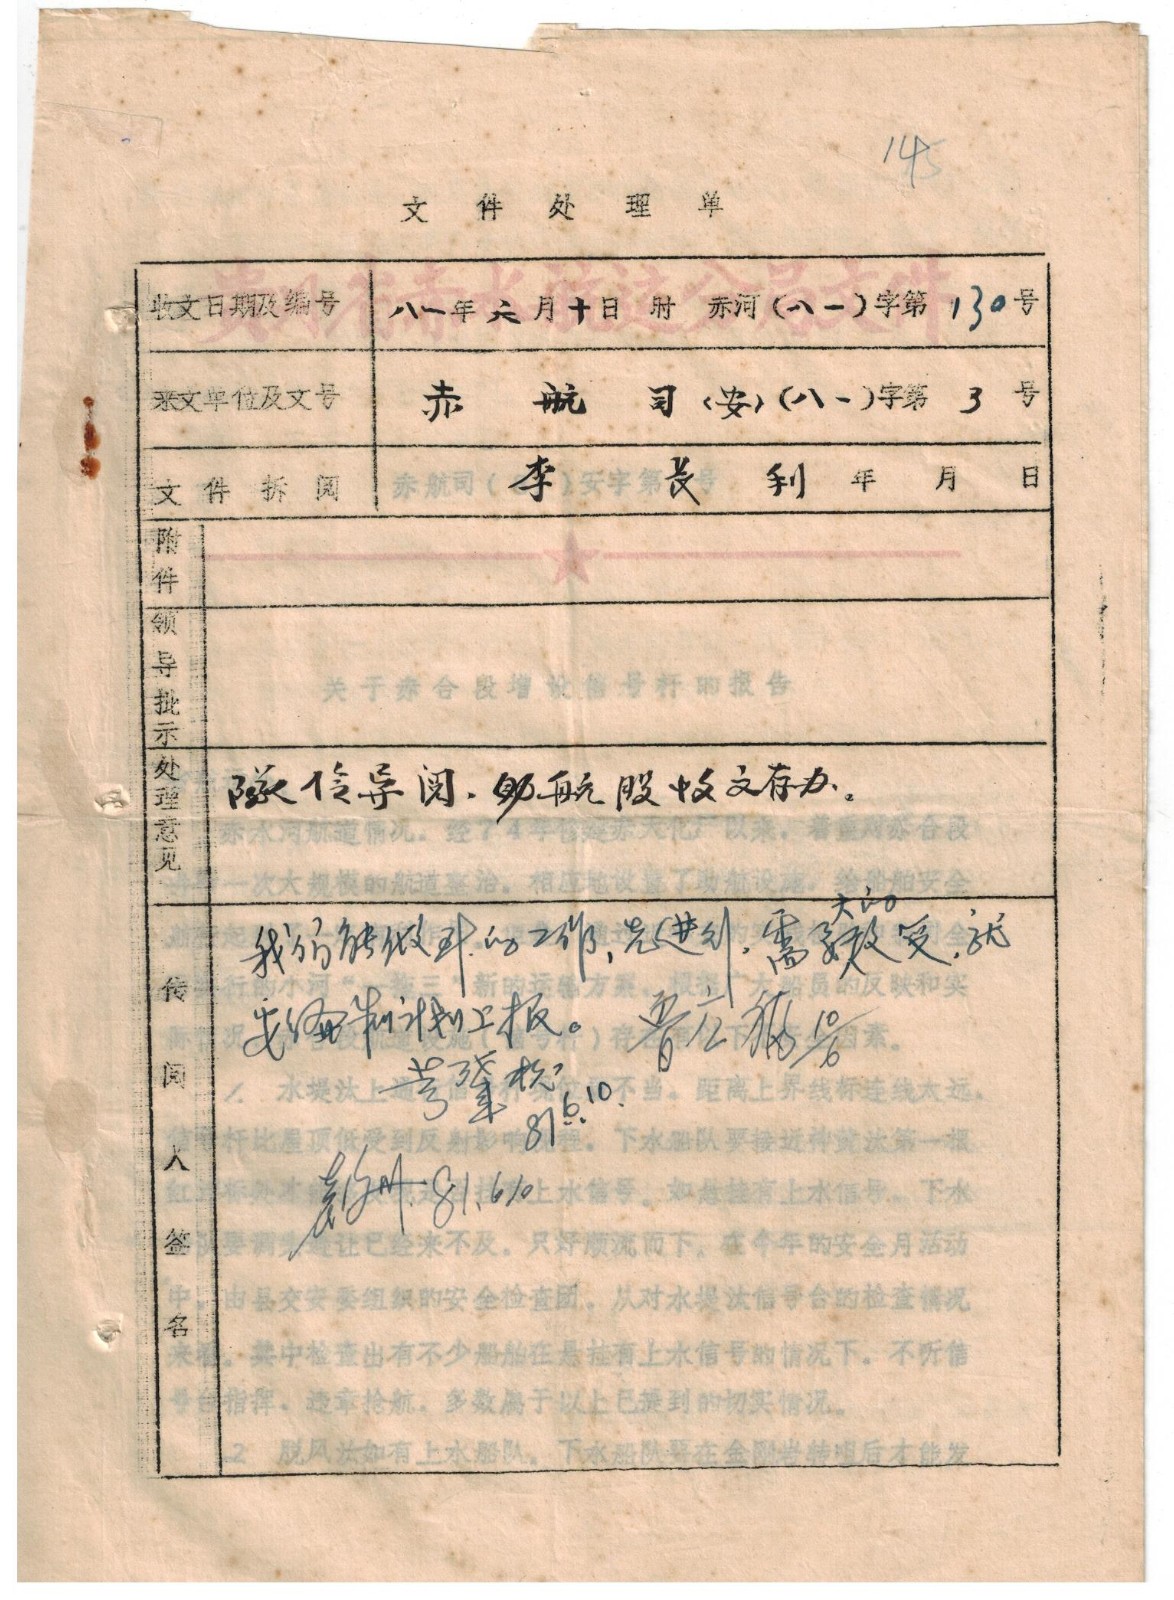 145
文件处理单
收文日期及编号 八一年六月十日 时 赤河(八一)字第130号
来文单位及文号 赤航司(安)(八一)字第3号
文件拆阅 李长利 年 月 日
赤航司( )安字第 号
附件
关于赤合段增设信号杆的报告
领导批示处理意见
队领导阅、助航股收文存办。
赤水河航道情况。经74年 赤天化厂以来,着重对赤合段
一次大规模的航道整治。相应地设置了助航设施,给船舶安全
传阅人签名
我们能做到的工作,先进行,需要大的改变,就
先编制计划上报。
10/6
行的小河“一拖三”新的运输方案。根据广大船员的反映和实
81.6.10.
1. 水堤汰上 不当。距离上界线标连线太远。
杆比屋顶低受到反射影响 。下水船队要接近神黄汰第一根
81.6.10
红 上水信号。如悬挂有上水信号。下水
要调头避让已经来不及。只好顺流而下。在今年的安全月活动
中。由县交安委组织的安全检查团。从对水堤汰信号台的检查情况
来看。其中检查出有不少船舶在悬挂有上水信号的情况下。不听信
号台指挥。违章抢航。多数属于以上已提到的切实情况。
2 脱风汰如有上水船队。下水船队要在金刚岩转咀后才能发